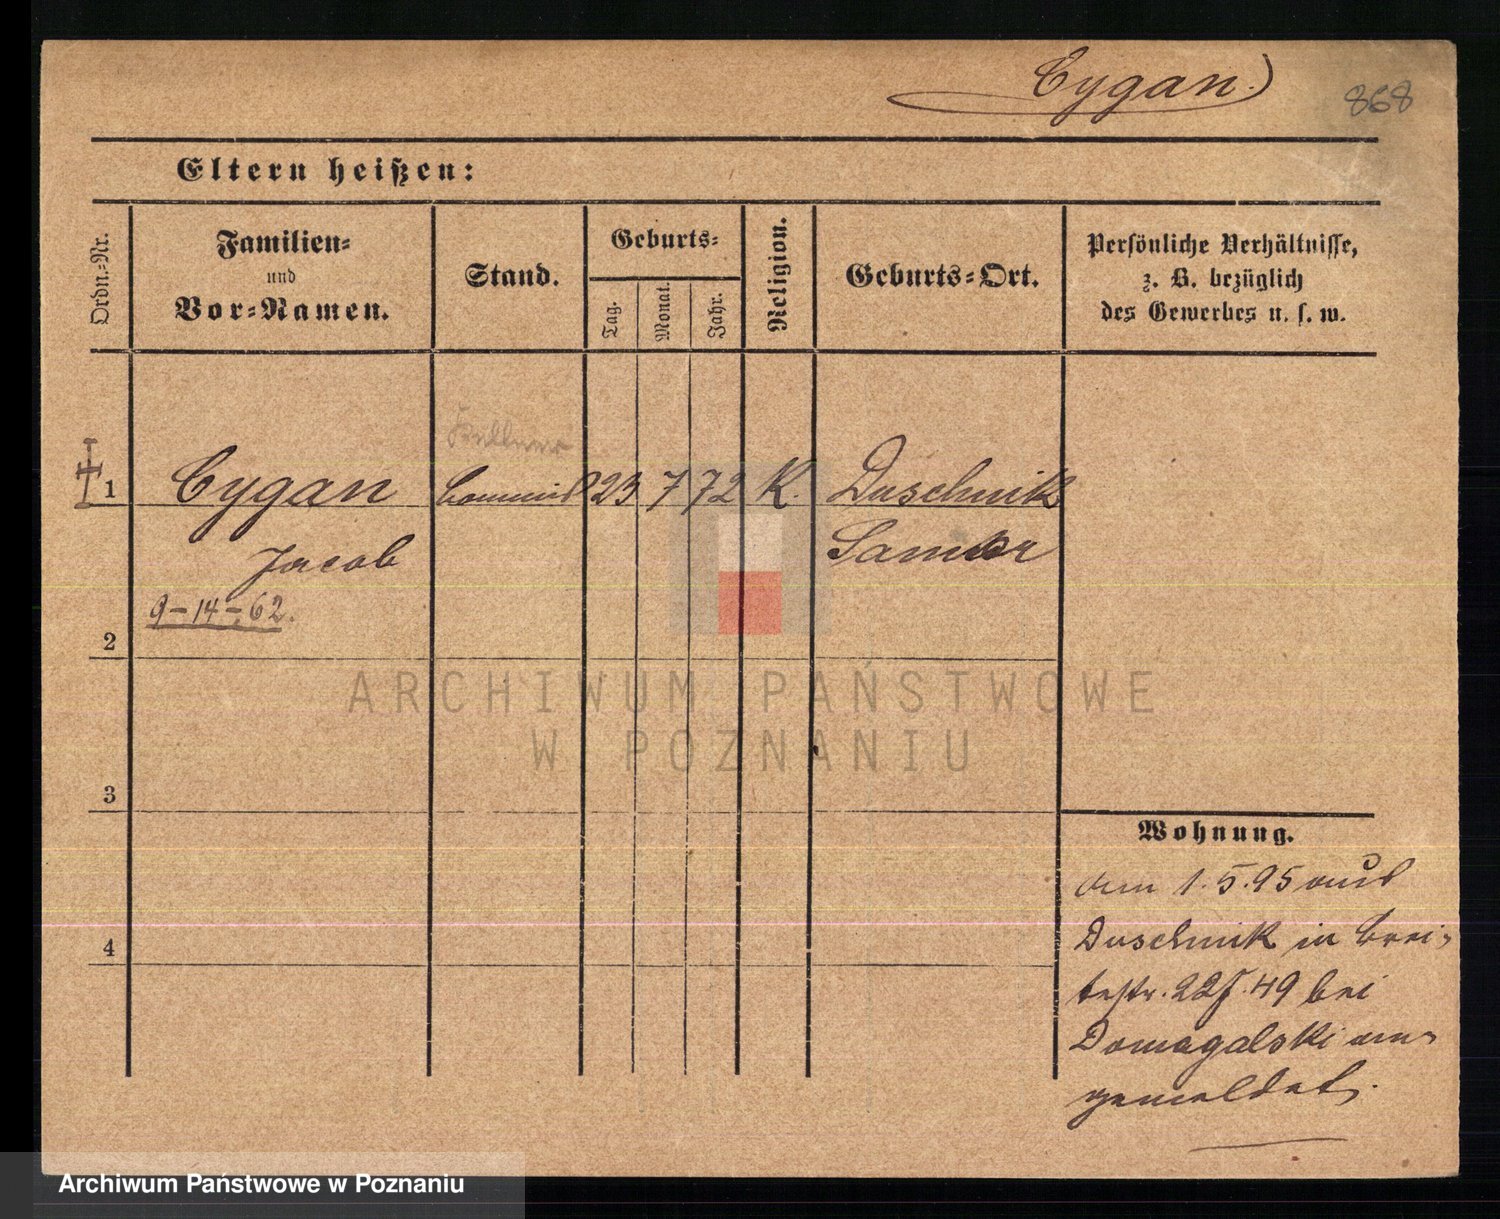 Cygan.
868
Eltern heißen:
Ordn.-Nr.
Familien-
und
Vor-Namen.
Stand.
Geburts-
Tag.
Monat.
Jahr.
Religion.
Geburts-Ort.
Persönliche Verhältnisse,
z. B. bezüglich
des Gewerbes u. s. w.
Kellner
1 Cygan Commis 23 7 72 K. Duschnik
Jacob Samter
9-14-62.
2
3
4
Wohnung.
am 1.5.95 aus
Duschnik in Brei-
testr. 22 49 bei
Domagalski an-
gemeldet.
ARCHIWUM PAŃSTWOWE
W POZNANIU
Archiwum Państwowe w Poznaniu